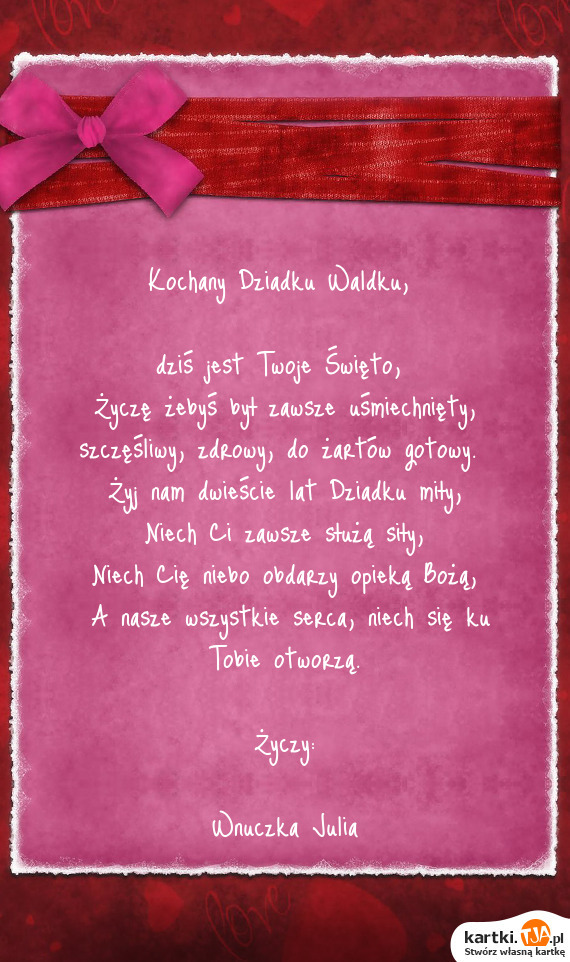 love
love
Kochany Dziadku Waldku,
dziś jest Twoje Święto,
Życzę żebyś był zawsze uśmiechnięty,
szczęśliwy, zdrowy, do żartów gotowy.
Żyj nam dwieście lat Dziadku miły,
Niech Ci zawsze służą siły,
Niech Cię niebo obdarzy opieką Bożą,
A nasze wszystkie serca, niech się ku
Tobie otworzą.
Życzy:
Wnuczka Julia
love
kartki.TJA.pl
Stwórz własną kartkę